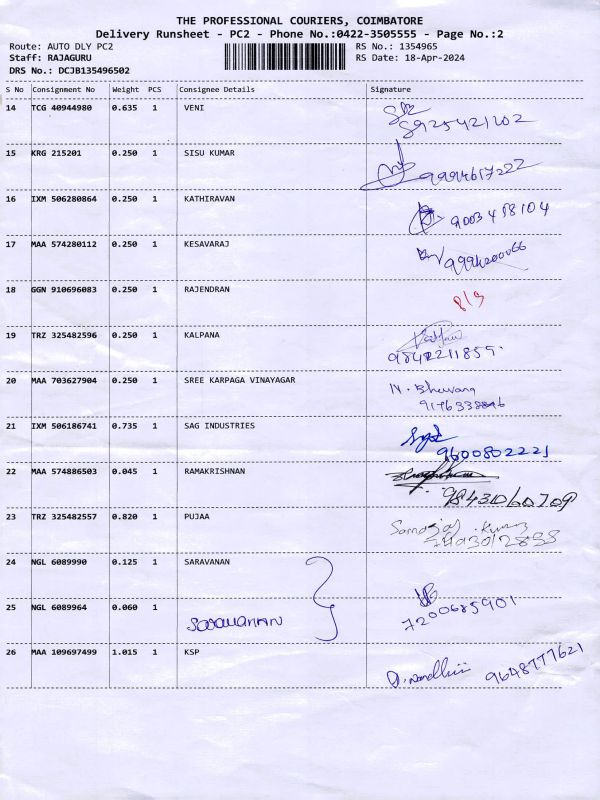 THE PROFESSIONAL COURIERS, COIMBATORE
Delivery Runsheet - PC2 - Phone No.:0422-3505555 - Page No.:2
Route: AUTO DLY PC2 RS No.: 1354965
Staff: RAJAGURU RS Date: 18-Apr-2024
DRS No.: DCJB135496502
S No Consignment No Weight PCS Consignee Details Signature
14 TCG 40944980 0.635 1 VENI 8925421202
15 KRG 215201 0.250 1 SISU KUMAR 9994617222
16 IXM 506280864 0.250 1 KATHIRAVAN
17 MAA 574280112 0.250 1 KESAVARAJ 9994200066
18 GGN 910696083 0.250 1 RAJENDRAN
19 TRZ 325482596 0.250 1 KALPANA 9842211859
20 MAA 703627904 0.250 1 SREE KARPAGA VINAYAGAR N. Bhuvana
21 IXM 506186741 0.735 1 SAG INDUSTRIES 9600802221
22 MAA 574886503 0.045 1 RAMAKRISHNAN 9843060709
23 TRZ 325482557 0.820 1 PUJAA
24 NGL 6089990 0.125 1 SARAVANAN
25 NGL 6089964 0.060 1 SARAVANAN 7200685901
26 MAA 109697499 1.015 1 KSP 9648777621